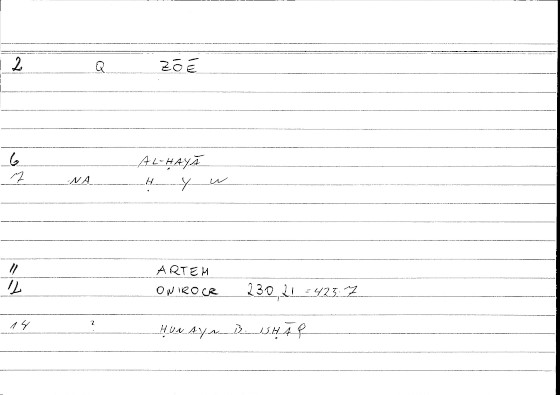 2 Q ZŌĒ
6 AL-ḤAYĀ
7 NA Ḥ Y W
11 ARTEM
12 ONIROCR 230,21 =423.7
14 ? ḤUNAYN B. ISḤĀQ